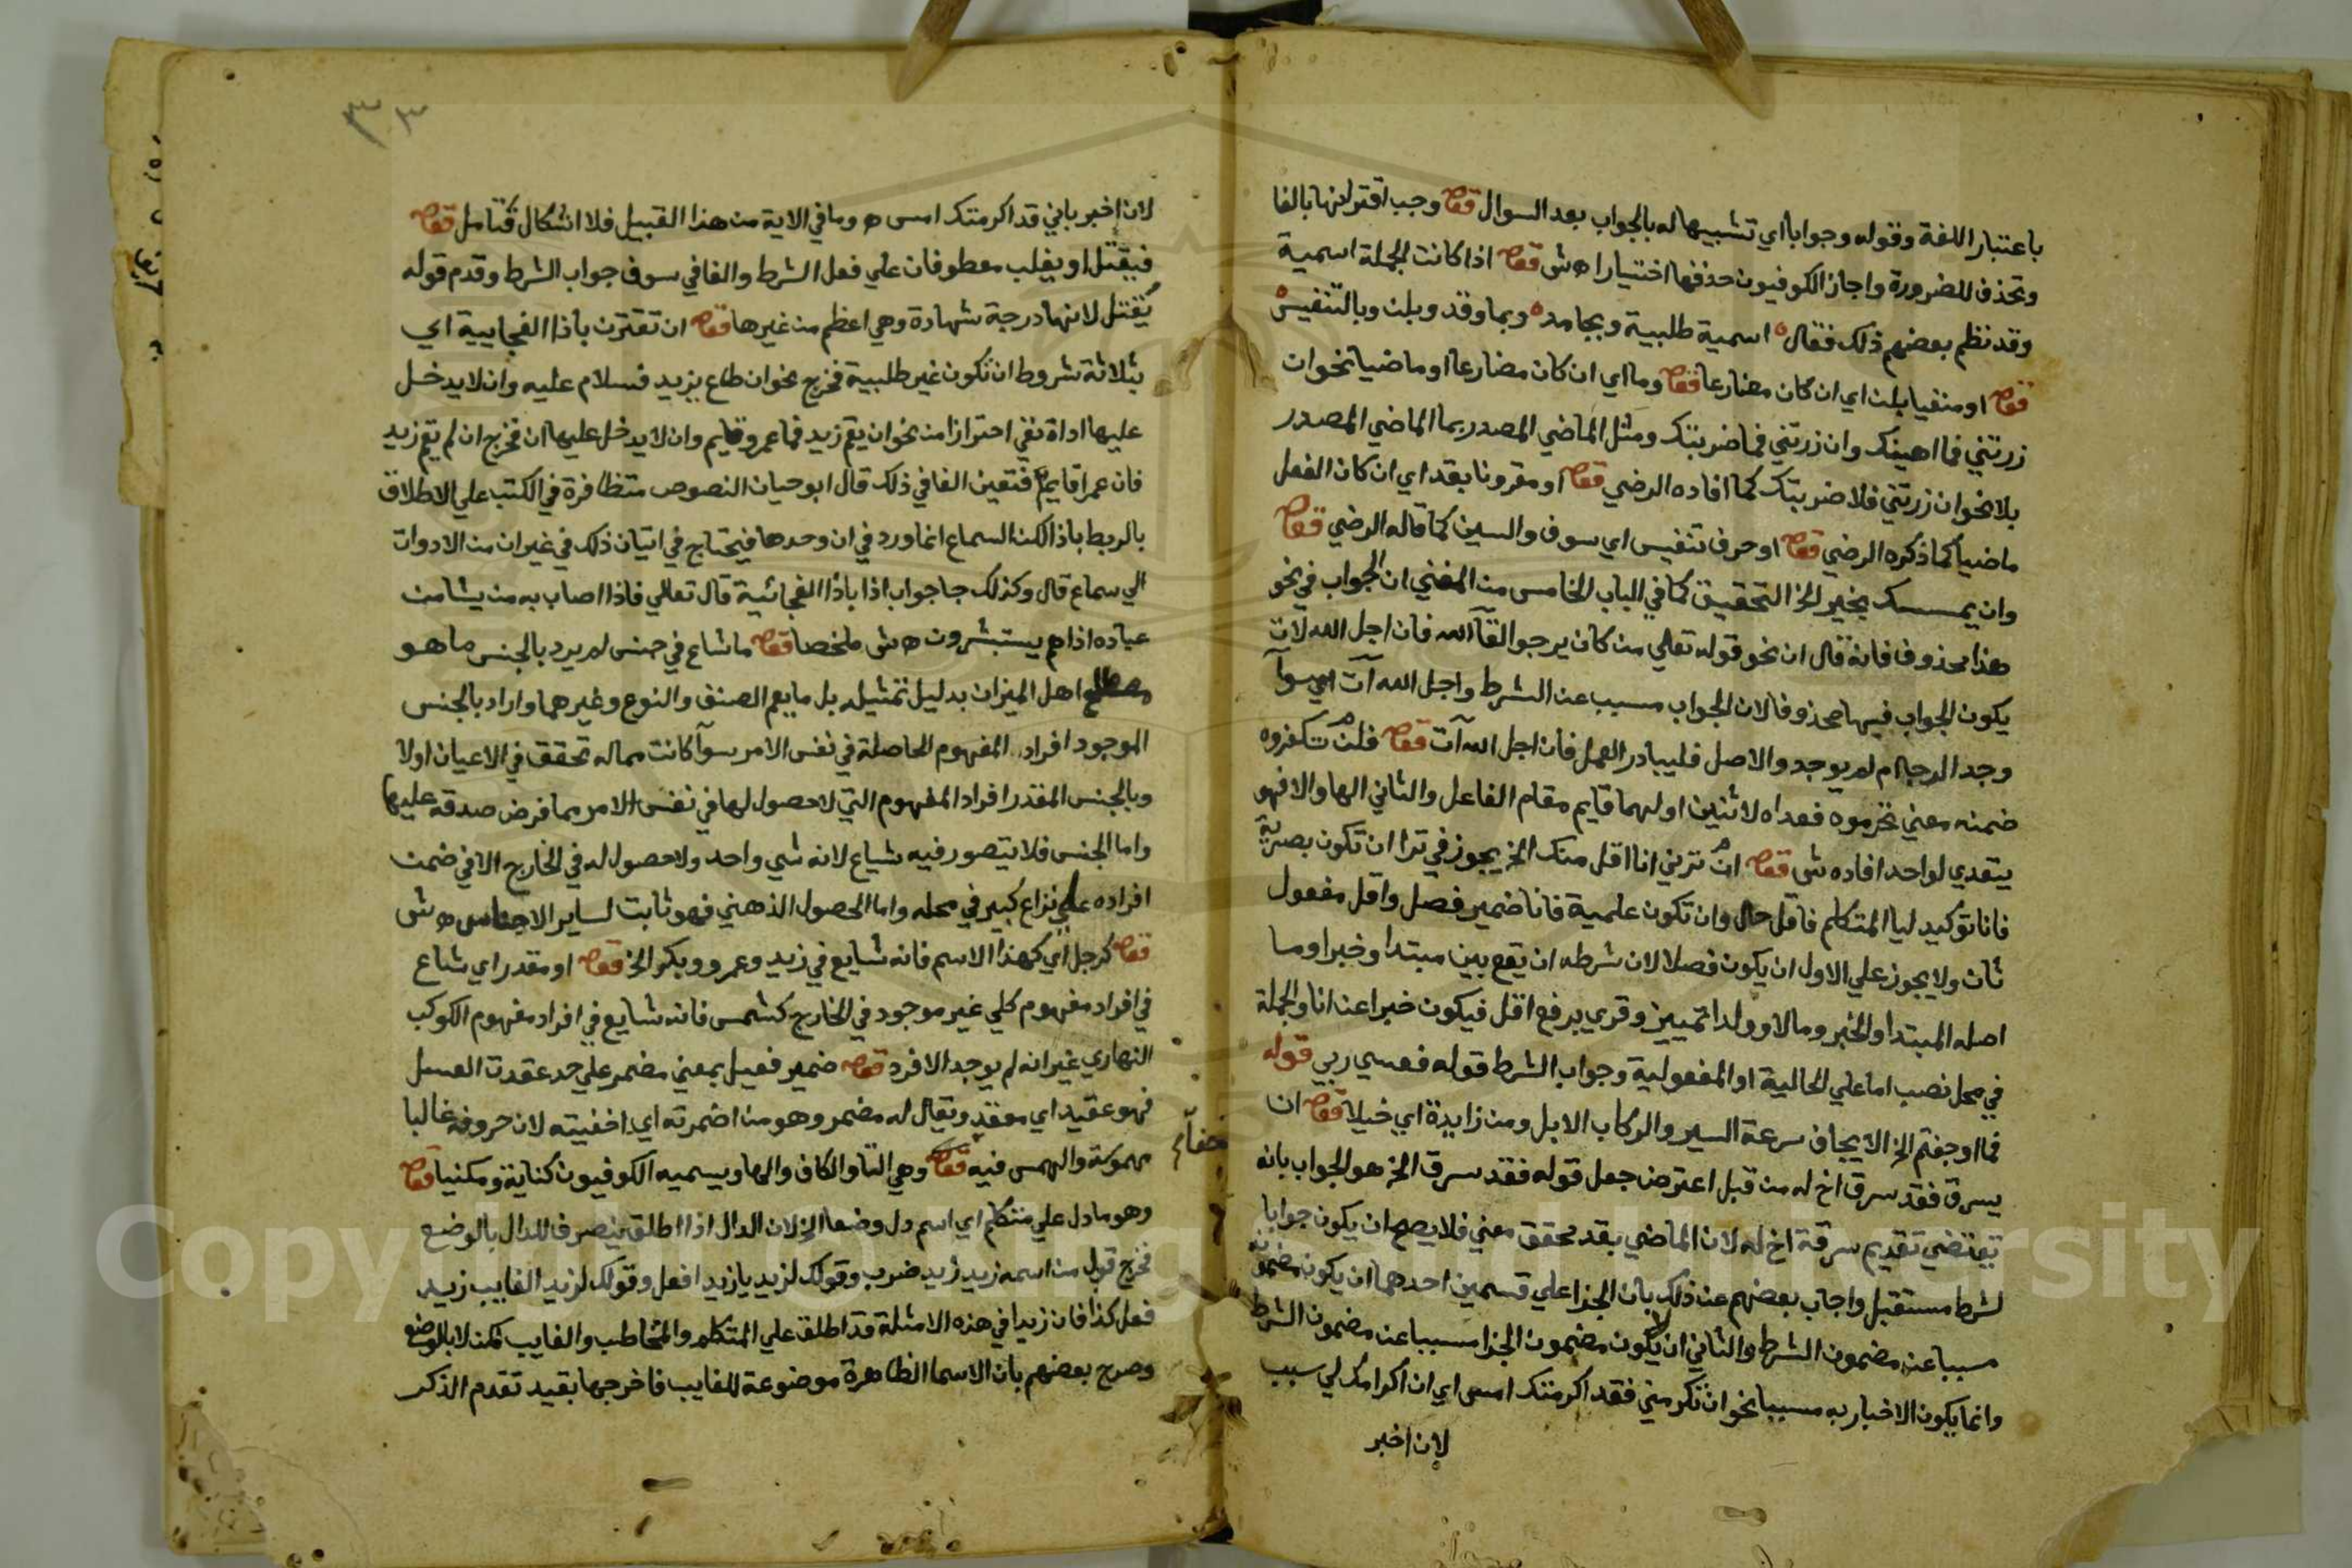 باعتبار اللغة وقوله وجوابا اي تشبيها له بالجواب بعد السوال قفله وجب اقترانها بالفا
وتحذف للضرورة واجاز الكوفيون حذفها اختيارا ه ش قفله اذا كانت الجملة اسمية
وقد نظم بعضهم ذلك فقال ه اسمية طلبية وبجامد ه وبما وقد وبلن وبالتنفيس ه
قفله او منفيا بلن اي ان كان مضارعا قفله وما اي ان كان مضارعا او ماضيا نحو ان
زرتني فما اهينك وان زرتني فما ضربتك ومثل الماضي المصدر بما الماضي المصدر
بلا نحو ان زرتني فلا ضربتك كما افاده الرضي قفله او مقرونا بقد اي ان كان الفعل
ماضيا كما ذكره الرضي قفله او حرف تنفيس اي سوف والسين كما قاله الرضي قفله
وان يمسسك بخير الخ التحقيق كما في الباب الخامس من المغني ان الجواب في نحو
هذا محذوف فانه قال ان نحو قوله تعالي من كان يرجو القآ الله فان اجل الله لات
يكون الجواب فيها محذوفا لان الجواب مسبب عن الشرط واجل الله آت اي سوآ
وجد الرجا ام لم يوجد والاصل فليبادر العمل فان اجل الله آت قفله فلن تكفروه
ضمنه معني تحرموه فعداه لاثنين اولهما قايم مقام الفاعل والثاني الها والا فهو
يتعدي لواحد افاده ش قفله ان ترني انا اقل منك الخ يجوز في ترا ان تكون بصرية
فانا توكيد ليا المتكلم فاقل حال وان تكون علمية فانا ضمير فصل واقل مفعول
ثان ولا يجوز علي الاول ان يكون فصلا لان شرطه ان يقع بين مبتدا وخبر او ما
اصله المبتدا والخبر ومالا وولدا تمييز وقري برفع اقل فيكون خبرا عن انا والجملة
في محل نصب اما علي الحالية او المفعولية وجواب الشرط قوله فعسي ربي قوله
فما اوجفتم الخ الايجاف سرعة السير والركاب الابل ومن زايدة اي خيلا قفله ان
يسرق فقد سرق اخ له من قبل اعترض جعل قوله فقد سرق الخ هو الجواب بانه
يقتضي تقديم سرقة اخ له لان الماضي بقد محقق معني فلا يصح ان يكون جوابا
لشرط مستقبل واجاب بعضهم عن ذلك بان الجزا علي قسمين احدهما ان يكون مضمونه
مسببا عن مضمون الشرط والثاني ان لا يكون مضمون الجزا مسببا عن مضمون الشرط
وانما يكون الاخبار به مسببا نحو ان تكرمني فقد اكرمتك امس اي ان اكرامك لي سبب
لان اخبر
لان اخبر باني قد اكرمتك امس ه وما في الاية من هذا القبيل فلا اشكال فتامل قفله
فيقتل او يغلب معطوفان علي فعل الشرط والفا في سوف جواب الشرط وقدم قوله
يقتل لانها درجة شهادة وهي اعظم من غيرها قفله ان تقترن باذا الفجايية اي
بثلاثة شروط ان تكون غير طلبية فخرج نحو ان طاع بزيد فسلام عليه وان لا يدخل
عليها اداة نفي احترازا من نحو ان يقم زيد فما عمرو قايم وان لا يدخل عليها ان فخرج ان لم يقم زيد
فان عمرا قايم فتعين الفا في ذلك قال ابو حيان النصوص متظافرة في الكتب علي الاطلاق
بالربط باذا لكن السماع انما ورد في ان وحدها فيحتاج في اتيان ذلك في غير ان من الادوات
الي سماع قال وكذلك جا جواب اذا باذا الفجائية قال تعالي فاذا اصاب به من يشا من
عباده اذا هم يستبشرون ه ش ملخصا قفله ما شاع في جنس لم يرد بالجنس ما هو
مصطلح اهل الميزان بدليل تمثيله بل ما يعم الصنف والنوع وغيرهما واراد بالجنس
الموجود افراد المفهوم الحاصلة في نفس الامر سوآ كانت مما له تحقق في الاعيان او لا
وبالجنس المقدر افراد المفهوم التي لا حصول لها في نفس الامر مما فرض صدقه عليها
واما الجنس فلا يتصور فيه شياع لانه شي واحد ولا حصول له في الخارج الا في ضمن
افراده علي نزاع كبير في محله واما الحصول الذهني فهو ثابت لساير الاجناس ه ش
قفله كرجل اي كهذا الاسم فانه شايع في زيد وعمرو وبكر الخ قفله او مقدر اي شاع
في افراد مفهوم كلي غير موجود في الخارج كشمس فانه شايع في افراد مفهوم الكوكب
النهاري غير انه لم يوجد الا فرد قفله ضمير فعيل بمعني مضمر علي حد عقدت العسل
فهو عقيد اي معقد ويقال له مضمر وهو من اضمرته اي اخفيته لان حروفه غالبا
مهموسة والهمس فيه خفآء قفله وهي التا والكاف والها ويسميه الكوفيون كناية ومكنيا قفله
وهو ما دل علي متكلم اي اسم دل وضعا الخ لان الدال اذا اطلق ينصرف للدال بالوضع
فخرج قول من اسمه زيد زيد ضرب وقولك لزيد يا زيد افعل وقولك لزيد الغايب زيد
فعل كذا فان زيدا في هذه الامثلة قد اطلق علي المتكلم والمخاطب والغايب لكن لا بالوضع
وصرح بعضهم بان الاسما الظاهرة موضوعة للغايب فاخرجها بقيد تقدم الذكر